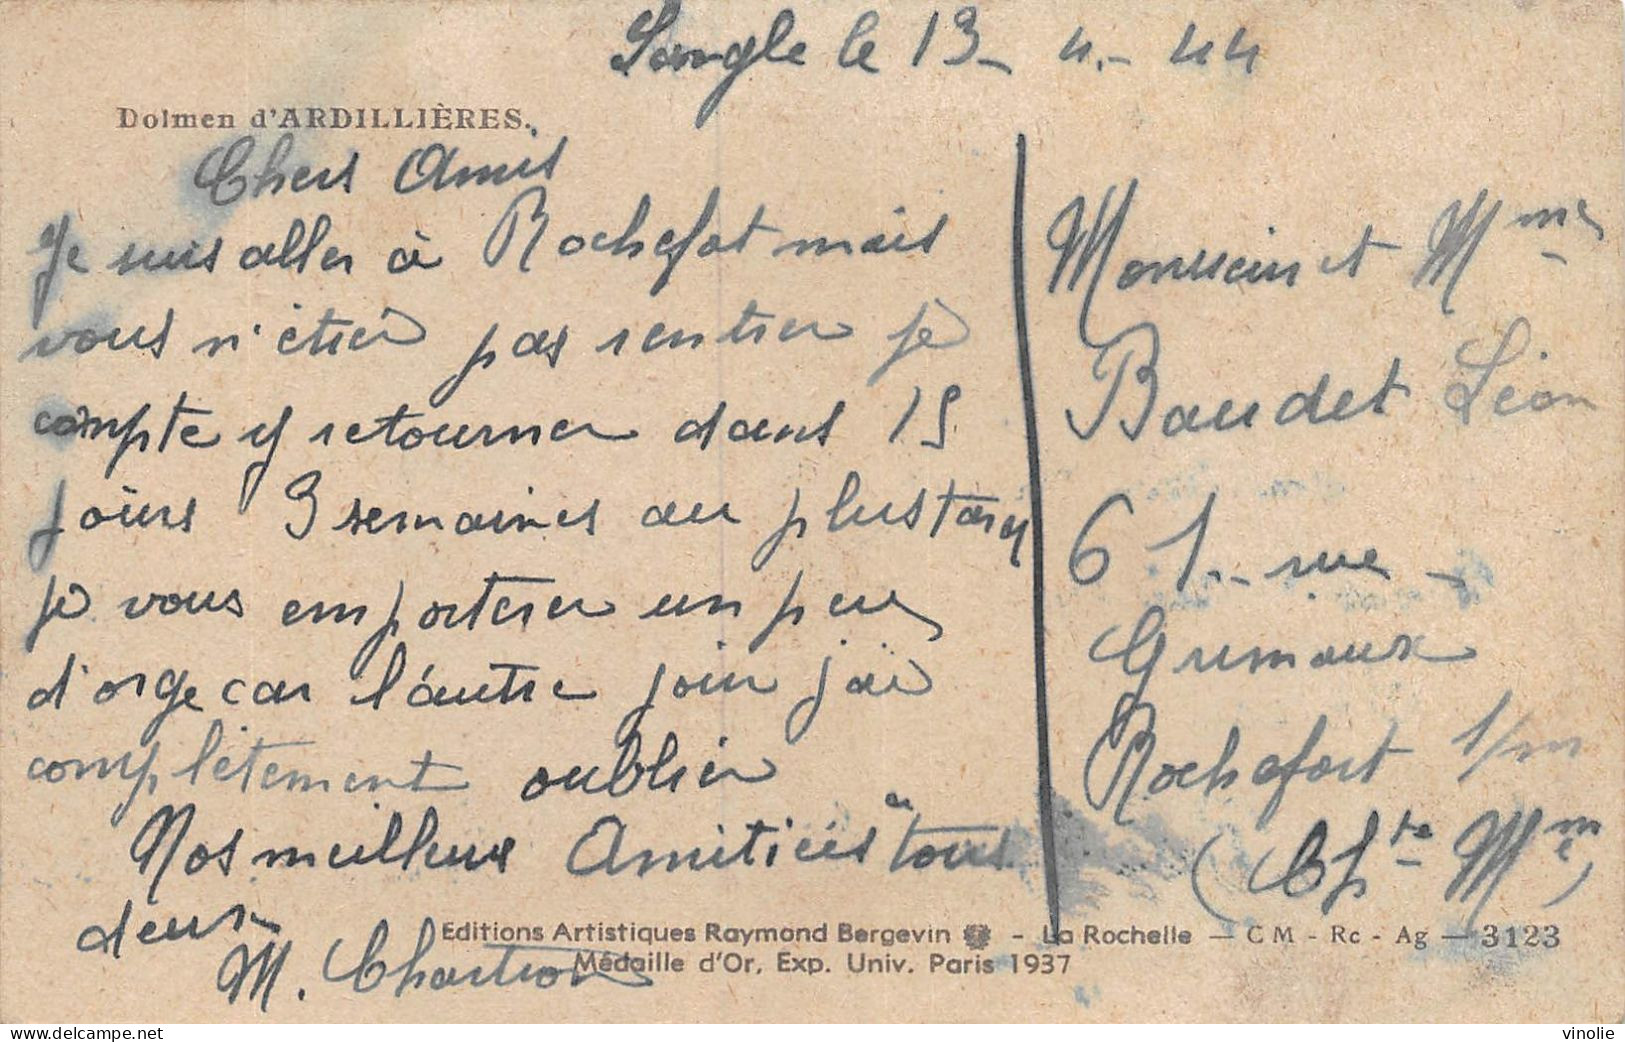 le 13 - 4 - 44
Dolmen d'ARDILLIÈRES.
Chers Amis
Je suis aller à Rochefot mais
vous n'étiéé pas rentrer je
compte y retourner dans 15
jours 3 semaines au plustard
je vous emporterer un peu
d'orge car l'autre join j'ai
complètement oublier
Nos meilleus Amitiés a tous
deux
M. Chartron
Monsieur et Mme
Baudet Léon
61 - rue -
Grimaux
Rochefort s/m
(Chte Mme)
Editions Artistiques Raymond Bergevin - La Rochelle — C M - Rc - Ag — 3123
Médaille d'Or, Exp. Univ. Paris 1937
delcampe.net
vinolie